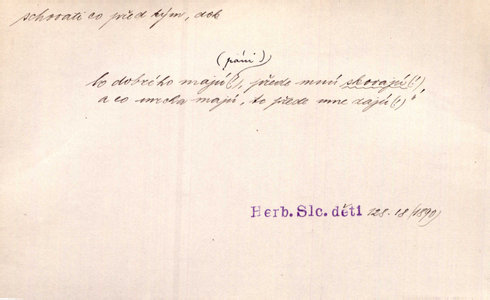 schovati co před kým, dok
(páni)
Co dobrého majú(!), přede mnú skovajú(!),
a co mrcha majú, to přede mne dajú(!)"
Herb. Slc. děti 128.18 (1890)